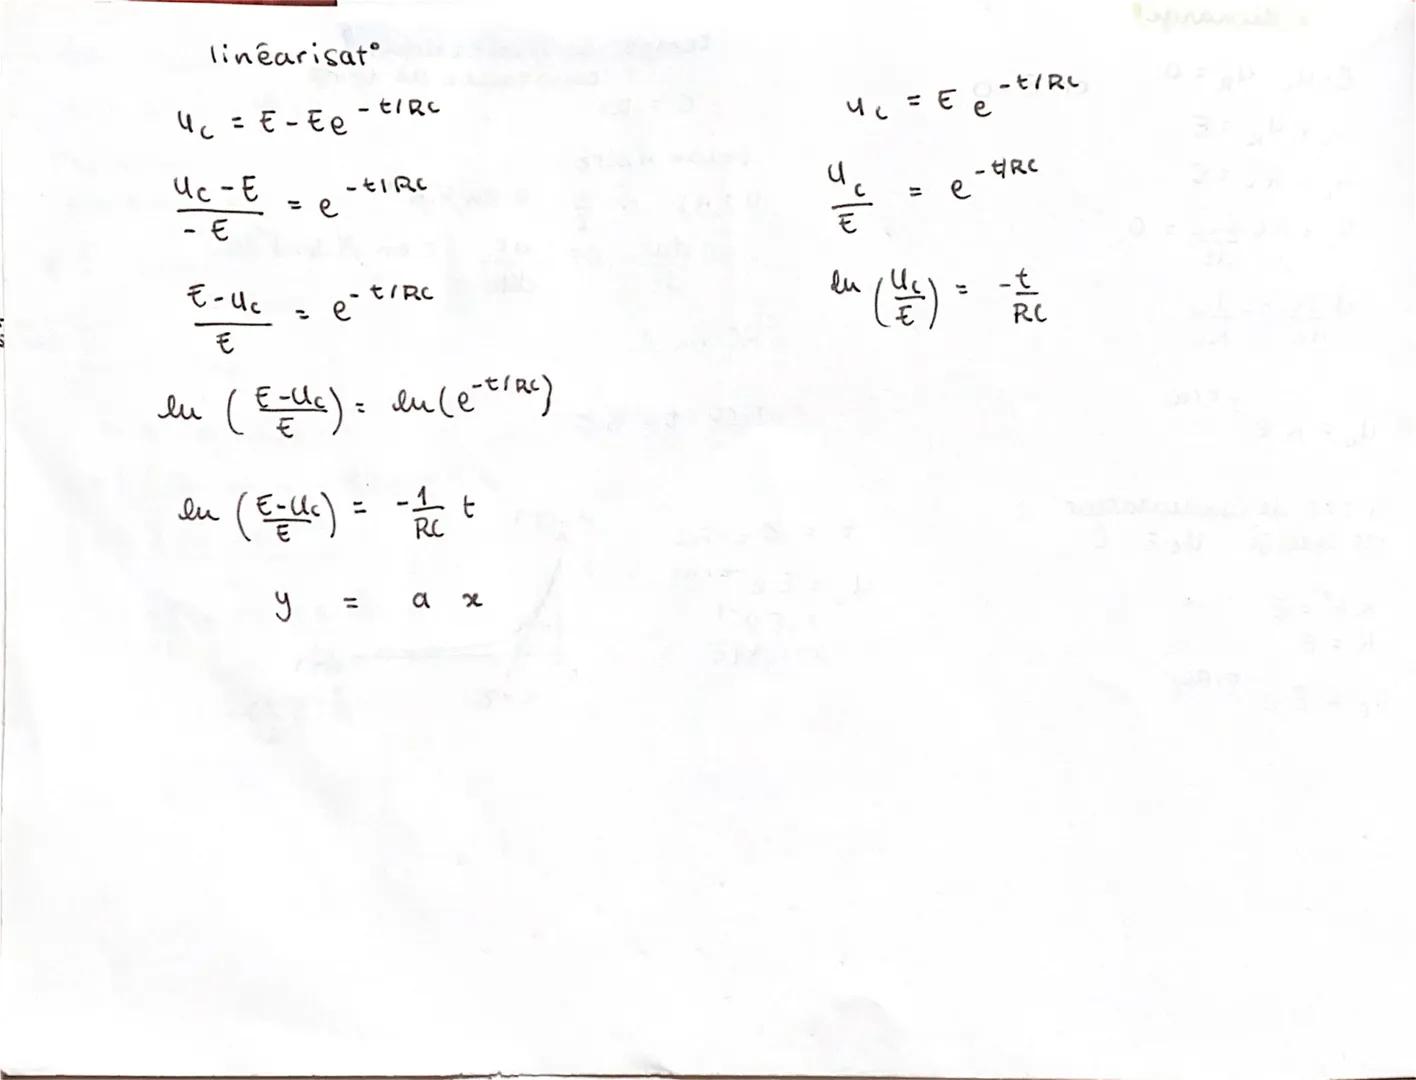 linéarisat°
u_c = E - E e^{-t/RC}
\frac{u_c - E}{-E} = e^{-t/RC}
\frac{E - u_c}{E} = e^{-t/RC}
ln (\frac{E - u_c}{E}) = ln(e^{-t/RC})
ln (\frac{E - u_c}{E}) = -\frac{1}{RC} t
y = a x
u_c = E e^{-t/RC}
\frac{u_c}{E} = e^{-t/RC}
ln (\frac{u_c}{E}) = \frac{-t}{RC}